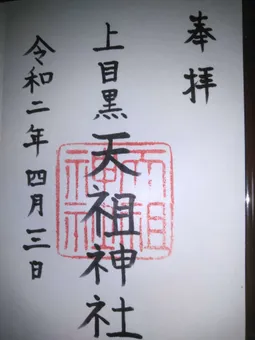 奉拝
上目黒天祖神社
令和二年四月三日
天祖神社